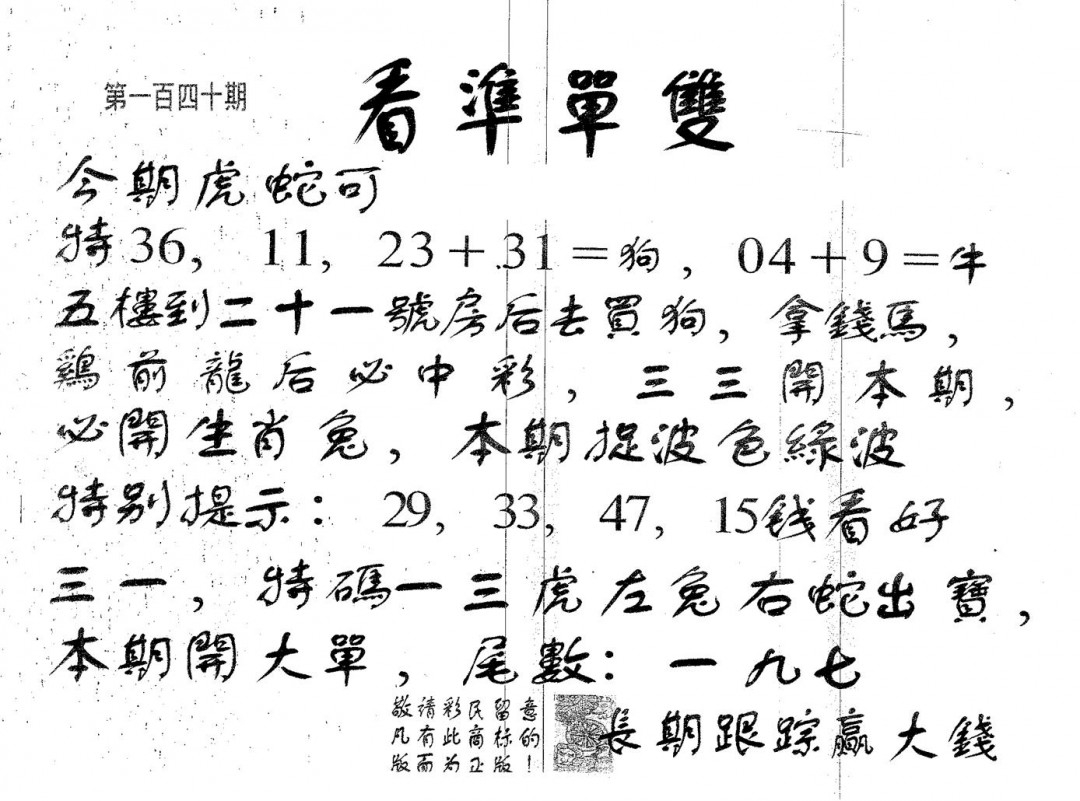 第一百四十期
看準單雙
今期虎蛇可
特36, 11, 23+31=狗, 04+9=牛
五樓到二十一號房后去買狗, 拿錢馬,
鷄前龍后必中彩, 三三開本期,
必開生肖兔, 本期捉波色綠波
特别提示: 29, 33, 47, 15钱看好
三一, 特碼一三虎左兔右蛇出寶,
本期開大單, 尾數: 一九七
敬請彩民留意
凡有此商标的!
版而为正版
長期跟踪赢大錢